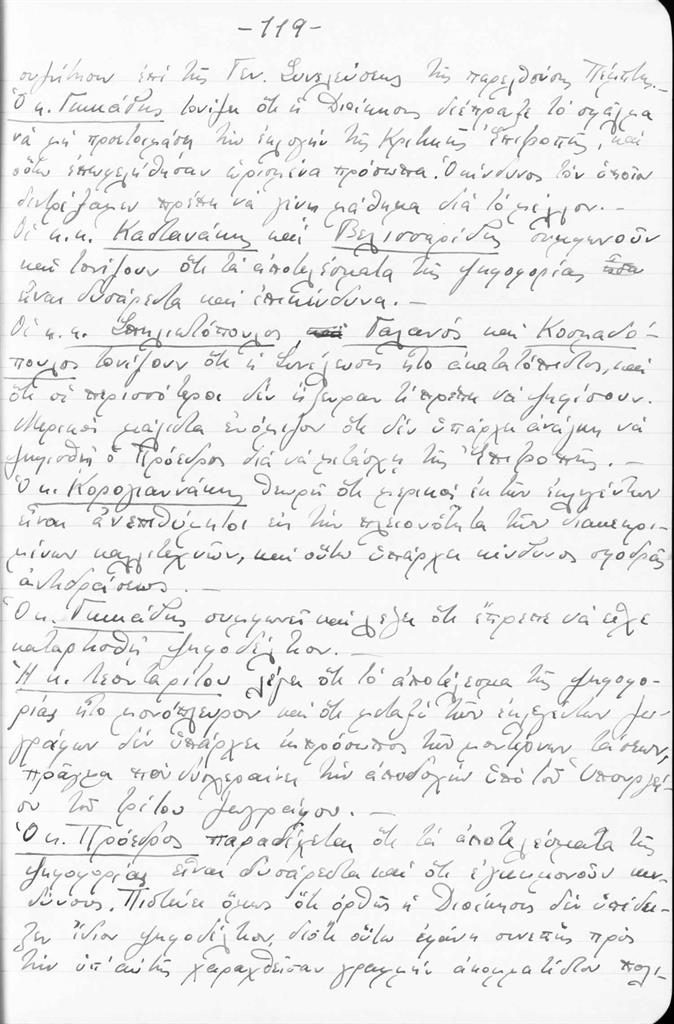 -119-
συζήτησιν ἐπὶ τῆς Γεν. Συνελεύσεως τῆς παρελθούσης Πέμπτης.-
Ὁ κ. Γκικάδης τονίζει ὅτι ἡ Διοίκησις διέπραξε τὸ σφάλμα
νὰ μὴ προετοιμάσῃ τὴν ἐκλογὴν τῆς Κριτικῆς Ἐπιτροπῆς, καὶ
οὕτω ἐπωφελήθησαν ὡρισμένα πρόσωπα. Ὁ κίνδυνος τὸν ὁποῖον
διετρέξαμεν πρέπει νὰ γίνῃ μάθημα διὰ τὸ μέλλον.-
Οἱ κ.κ. Καστανάκης καὶ Βελισσαρίδης συμφωνοῦν
καὶ τονίζουν ὅτι τὰ ἀποτελέσματα τῆς ψηφοφορίας
εἶναι δυσάρεστα καὶ ἐπικίνδυνα.-
Οἱ κ.κ. Σπηλιωτόπουλος, Γαλανός καὶ Κοσμαδό-
πουλος τονίζουν ὅτι ἡ Συνέλευσις ἦτο ἀκατατόπιστος, καὶ
ὅτι οἱ περισσότεροι δὲν ἤξευραν τί πρέπει νὰ ψηφίσουν.
Μερικοὶ μάλιστα ἐνόμιζον ὅτι δὲν ὑπάρχει ἀνάγκη νὰ
ψηφισθῇ ὁ Πρόεδρος διὰ νὰ μετάσχῃ τῆς Ἐπιτροπῆς.-
Ὁ κ. Κορογιαννάκης θεωρεῖ ὅτι μερικοὶ ἐκ τῶν ἐκλεγέντων
εἶναι ἀνεπιθύμητοι εἰς τὴν πλειονότητα τῶν διακεκρι-
μένων καλλιτεχνῶν, καὶ οὕτω ὑπάρχει κίνδυνος σφοδρᾶς
ἀντιδράσεως.-
Ὁ κ. Γκικάδης συμφωνεῖ καὶ λέγει ὅτι ἔπρεπε νὰ εἶχε
καταρτισθῆ ψηφοδέλτιον.-
Ἡ κ. Λεονταρίτου λέγει ὅτι τὸ ἀποτέλεσμα τῆς ψηφοφο-
ρίας ἦτο μονόπλευρον καὶ ὅτι μεταξὺ τῶν ἐκλεγέντων ζω-
γράφων δὲν ὑπάρχει ἐκπρόσωπος τῶν μοντέρνων τάσεων,
πρᾶγμα ποὺ δυσχεραίνει τὴν ἀποδοχὴν ὑπὸ τοῦ Ὑπουργεί-
ου τοῦ τρίτου ζωγράφου.-
Ὁ κ. Πρόεδρος παραδέχεται ὅτι τὰ ἀποτελέσματα τῆς
ψηφοφορίας εἶναι δυσάρεστα καὶ ὅτι ἐγκυμονοῦν κιν-
δύνους. Πιστεύει ὅμως ὅτι ὀρθῶς ἡ Διοίκησις δὲν ὑπέδει-
ξεν ἴδιον ψηφοδέλτιον, διότι οὕτω ἐφάνη συνεπὴς πρὸς
τὴν ὑπ' αὐτῆς χαραχθεῖσαν γραμμὴν ἀκομματίστου πολι-